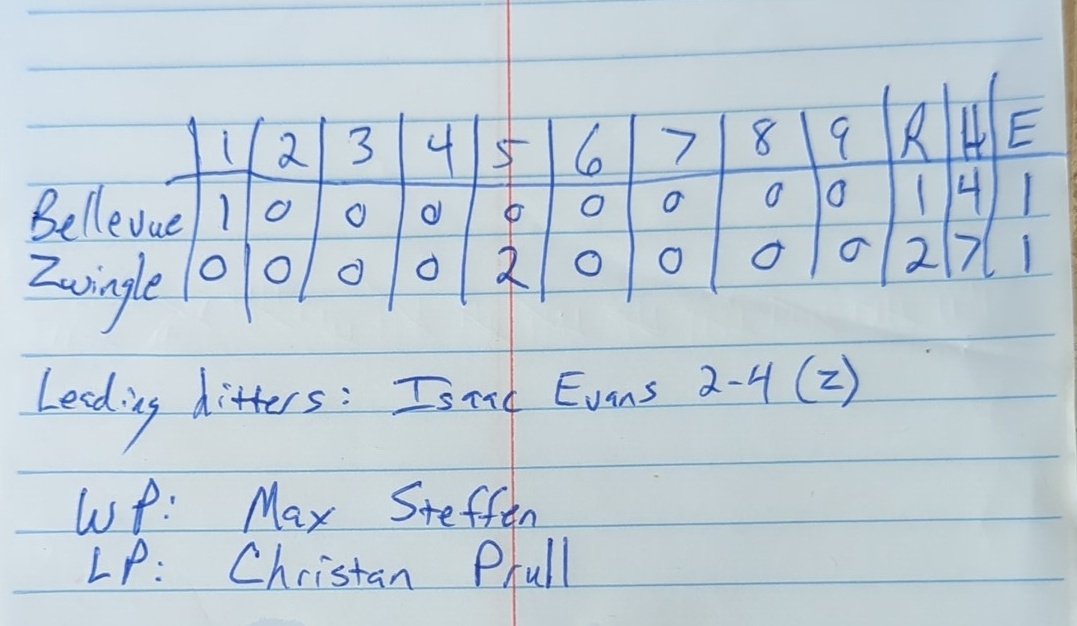 1 2 3 4 5 6 7 8 9 R H E
Bellevue 1 0 0 0 0 0 0 0 0 1 4 1
Zwingle 0 0 0 0 2 0 0 0 0 2 7 1
Leading hitters: Isaac Evans 2-4 (Z)
WP: Max Steffen
LP: Christan Prull